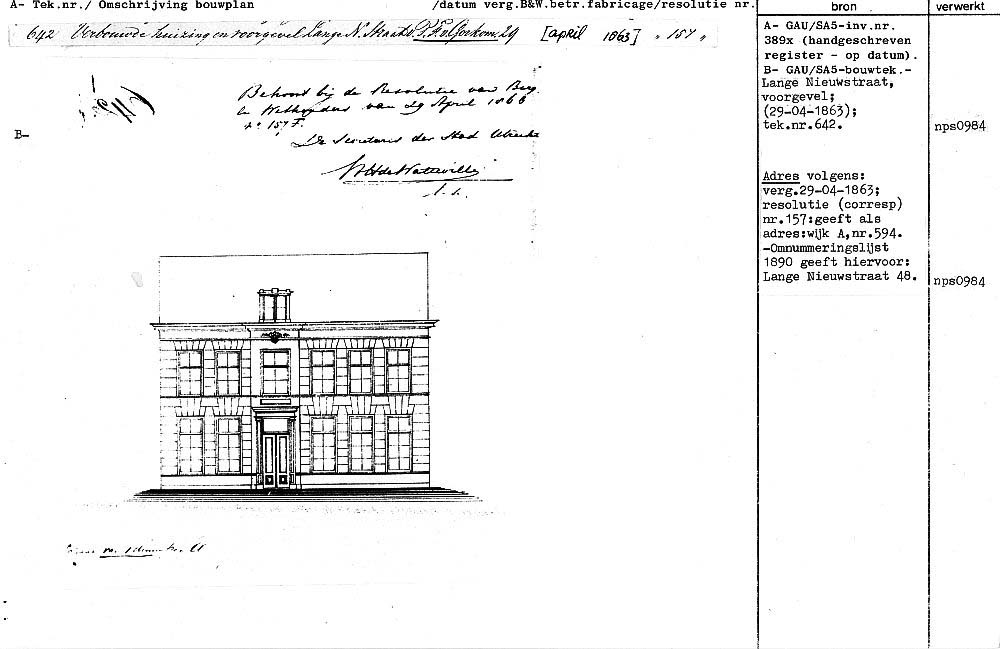 A- Tek.nr./ Omschrijving bouwplan /datum verg.B&W.betr.fabricage/resolutie nr. bron verwerkt
642 Verbouwde huizing en voorgevel Lange N. Straat P. F. v. Gorkom. 29 [april 1863] "157"
Behoort bij de Resolutie van Burg.
en Wethouders van 29 April 1863
n° 157 F.
De Secretaris der Stad Utrecht
B-
A- GAU/SA5-inv.nr.
389x (handgeschreven
register - op datum).
B- GAU/SA5-bouwtek.-
Lange Nieuwstraat,
voorgevel;
(29-04-1863);
tek.nr.642.
nps0984
Adres volgens:
verg.29-04-1863;
resolutie (corresp)
nr.157:geeft als
adres:wijk A,nr.594.
-Omnummeringslijst
1890 geeft hiervoor:
Lange Nieuwstraat 48.
nps0984